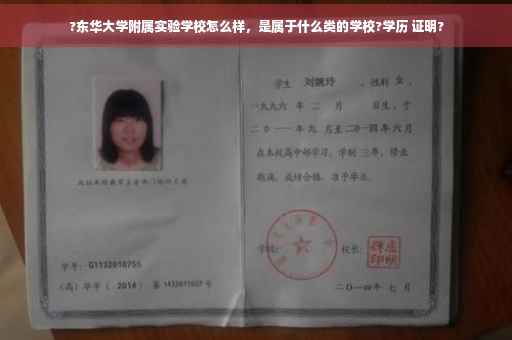 ?东华大学附属实验学校怎么样，是属于什么类的学校?学历 证明?
学生 刘婉玲 ，性别 女 ，
一九九六 年 二 月 日生，于
二〇一一 年 九 月至 二〇一四 年 六 月
在本校高中部学习，学制 三 年，修业
期满，成绩合格，准予毕业。
学号：G1132010755
（高）毕字（ 2014 ）第 1432011007 号
学校：
校长：
二〇一四年 七 月